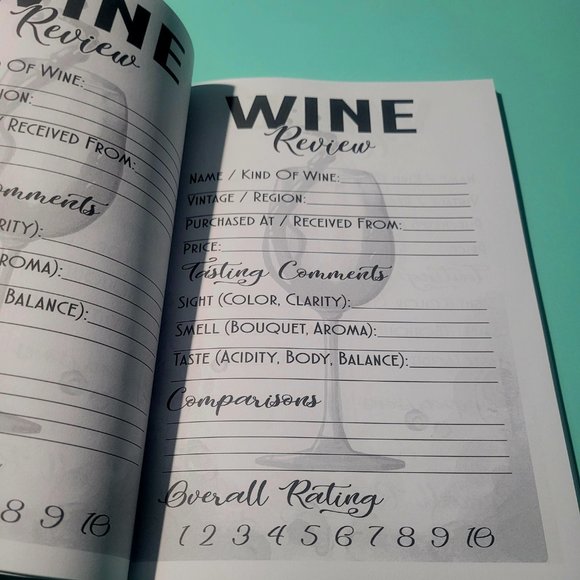 WINE
Review
Of Wine:
/ Received From:
8 9 10
WINE
Review
Name / Kind Of Wine:
Vintage / Region:
Purchased At / Received From:
Price:
Tasting Comments
Sight (Color, Clarity):
Smell (Bouquet, Aroma):
Taste (Acidity, Body, Balance):
Comparisons
Overall Rating
1 2 3 4 5 6 7 8 9 10